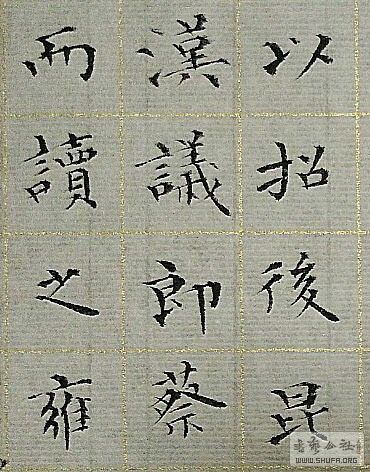 以招後昆
漢議郎蔡
而讀之雍
書藝公社
WWW.SHUFA.ORG